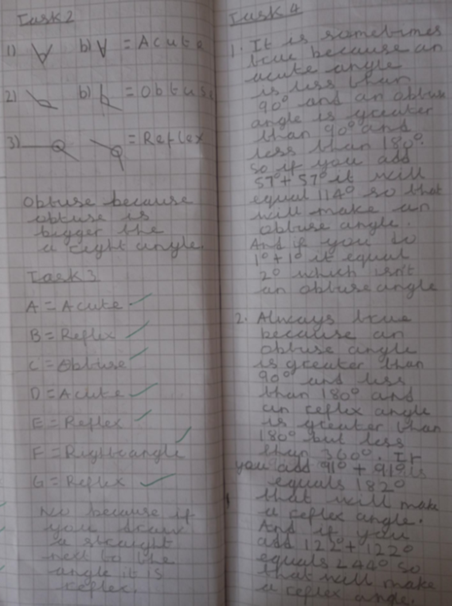 Task 2
1) b) = Acute
2) b) = Obtuse
3) = Reflex
Obtuse because
obtuse is
bigger the
a right angle.
Task 3
A = Acute
B = Reflex
C = Obtuse
D = Acute
E = Reflex
F = Right angle
G = Reflex
No because if
you draw
a straight
next to the
angle it is
reflex.
Task 4
1. It is sometimes
true because an
acute angle
is less than
90° and an obtuse
angle is greater
than 90° and
less than 180°.
So if you add
57° + 57° it will
equal 114° so that
will make an
obtuse angle.
And if you do
1° + 1° it equal
2° which isn't
an obtuse angle
2. Always true
because an
obtuse angle
is greater than
90° and less
than 180° and
an reflex angle
is greater than
180° but less
than 360°. If
you add 91° + 91° is
equals 182°
that will make
a reflex angle.
And if you
add 122° + 122°
equals 244° so
that will make
a reflex angle.